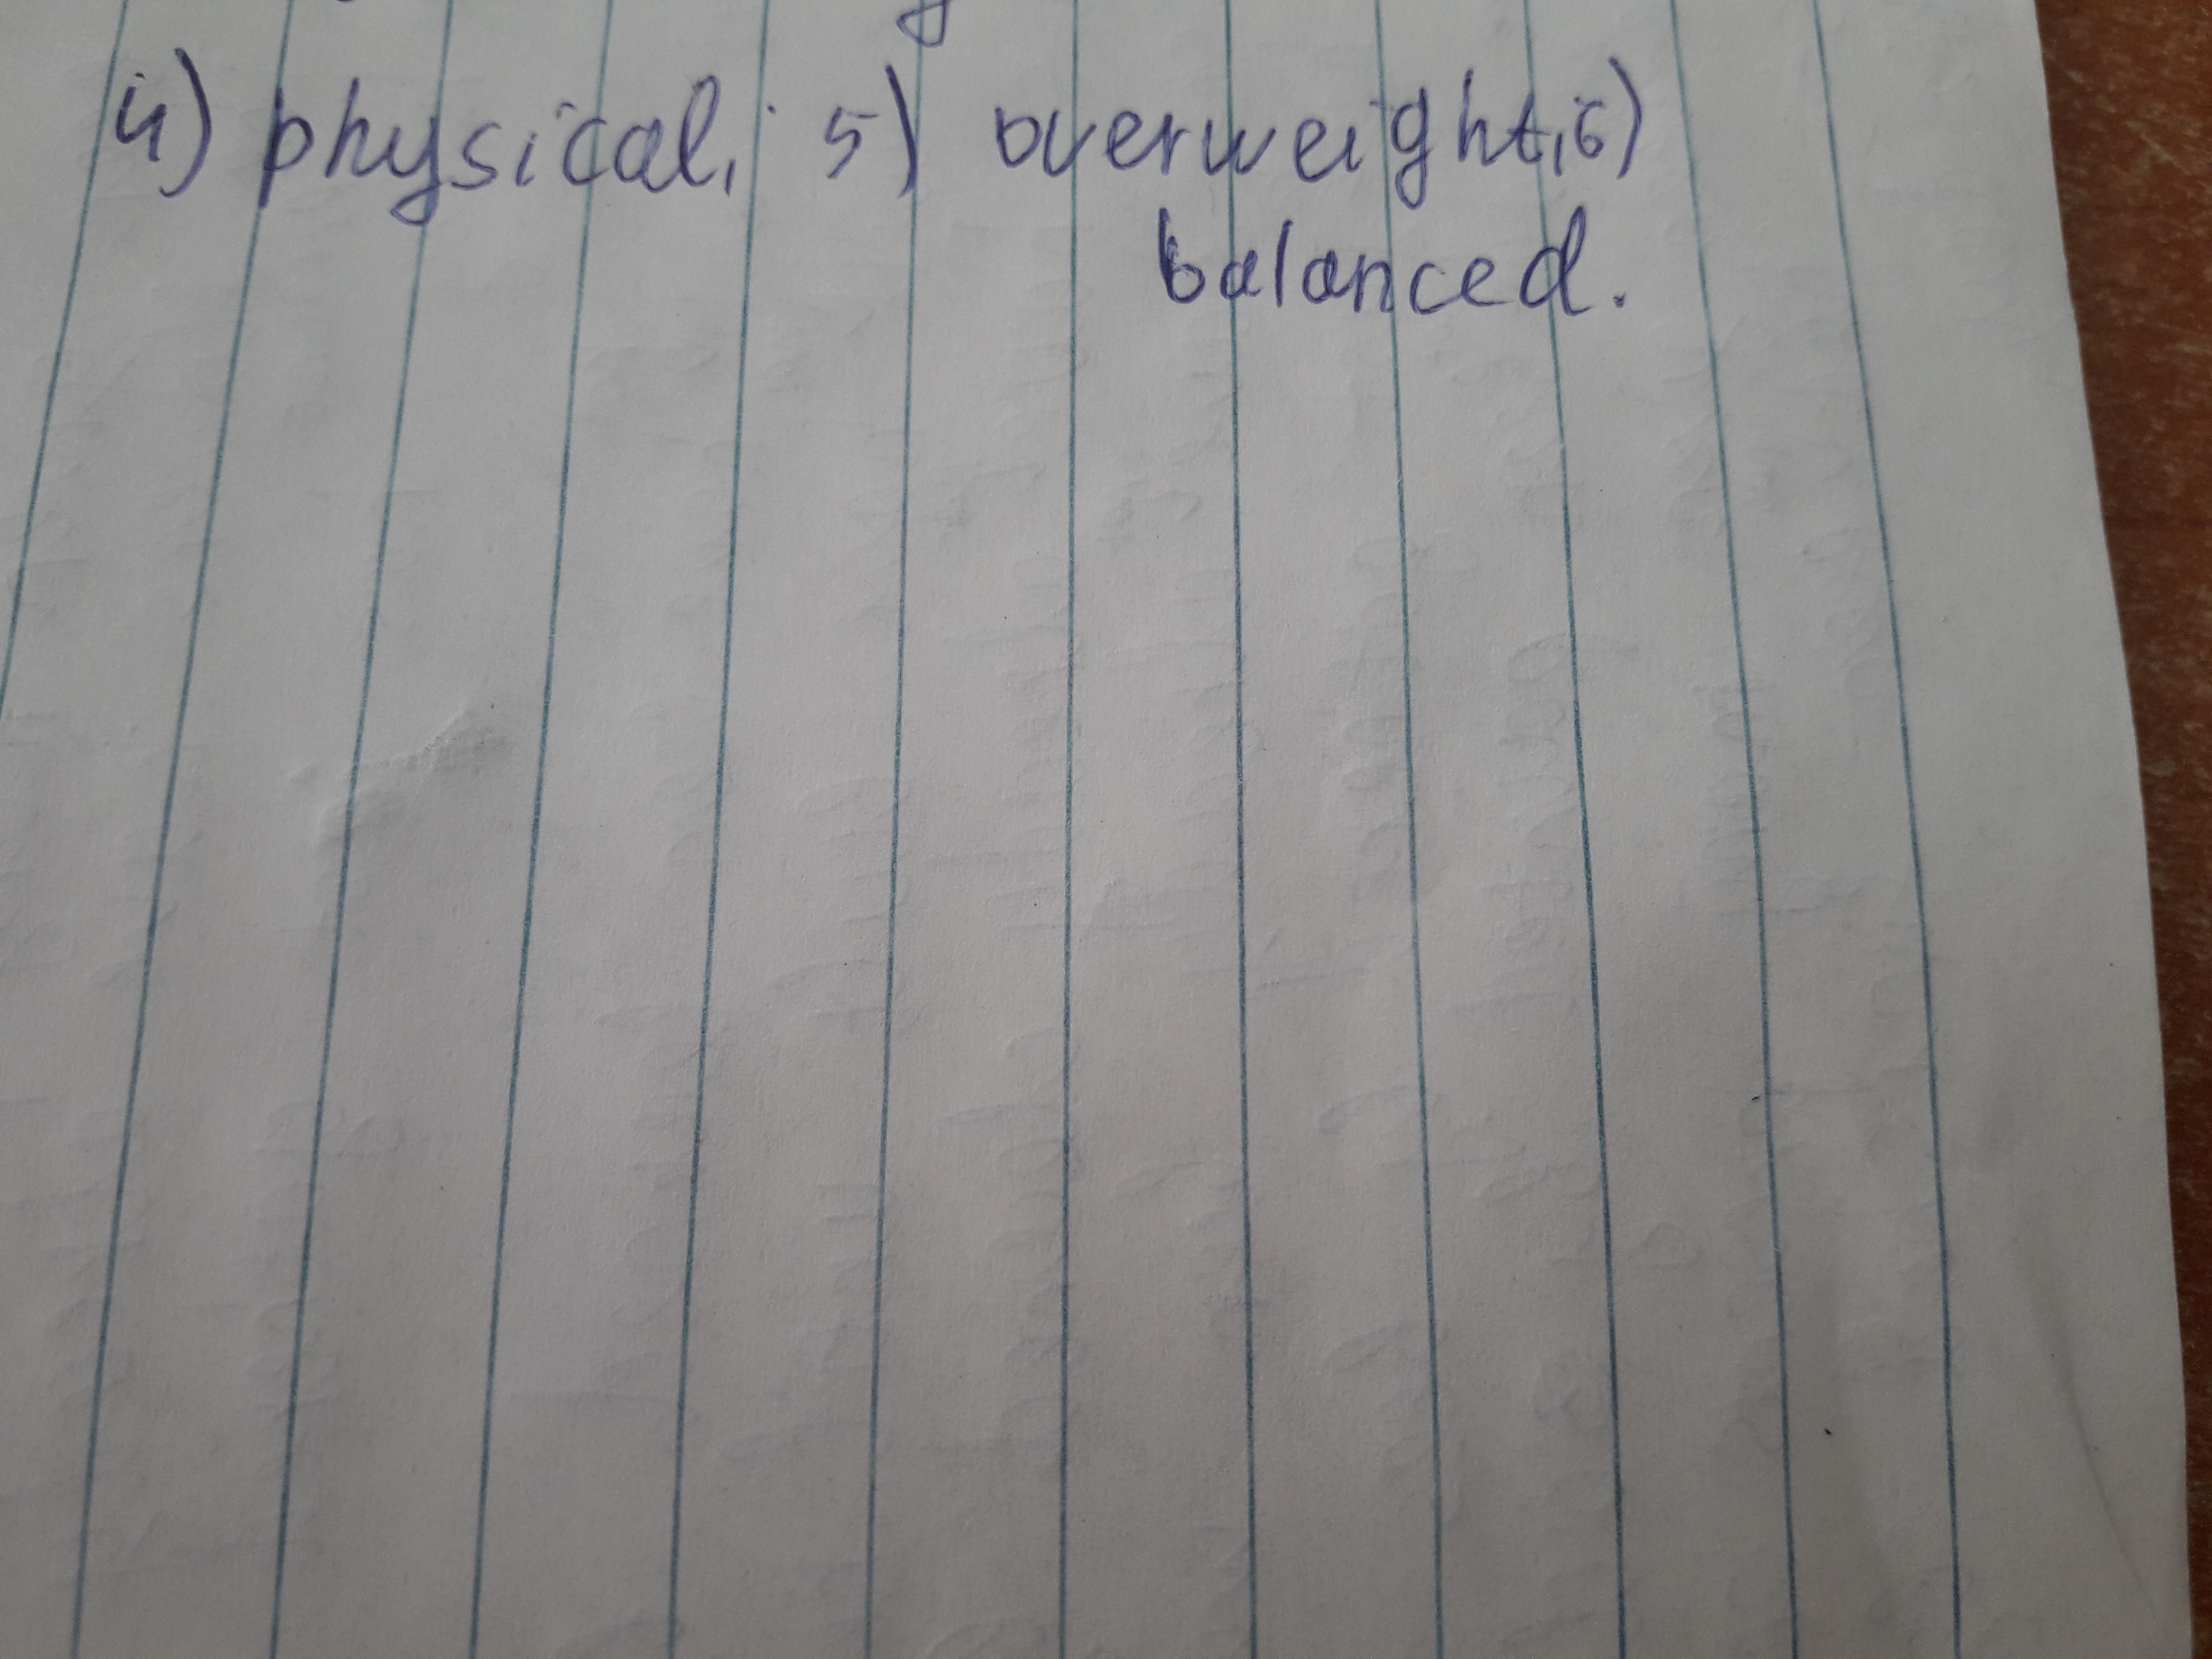 4) physical, 5) overweight, 6)
balanced.